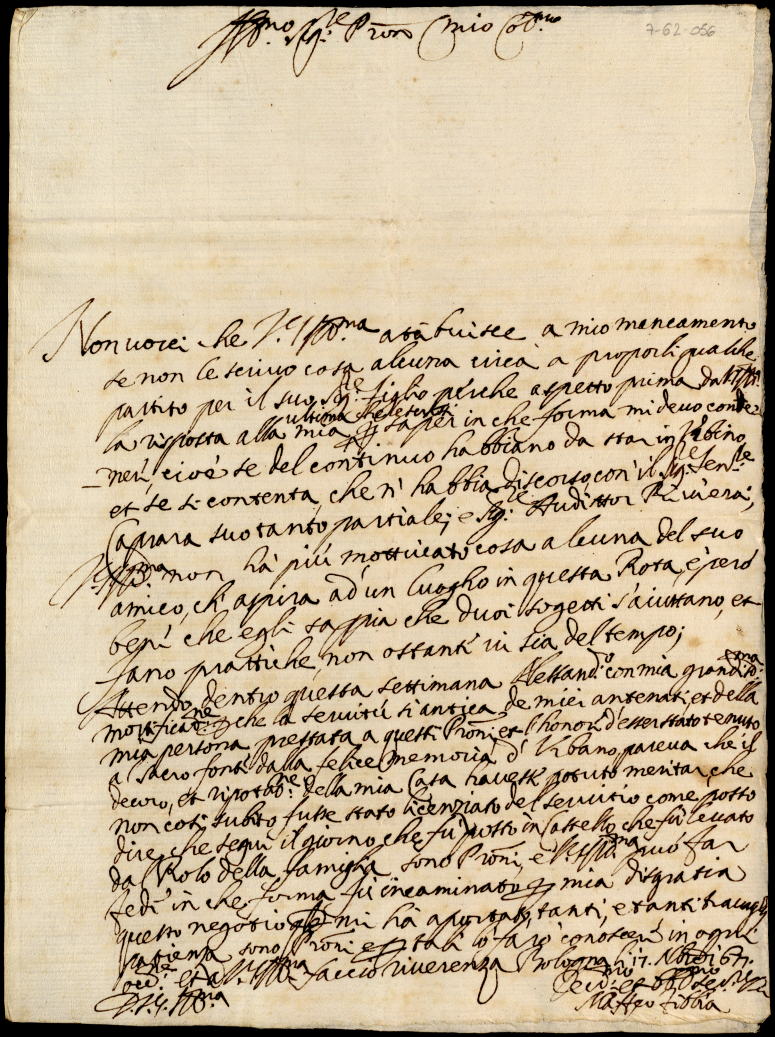 7-62-056
Ill.mo Sig.re Pron mio Col.mo
Non vorei che V.S. Ill.ma atribuisce a mio mancamento
se non le scrivo cosa alcuna circa a proporli qualche
partito per il suo Sig.re figlio perche aspetto prima da V.S. Ill.ma
la risposta alla mia ultima p saper in che forma mi devo conte=
=ner, cioè se del continuo habbiano da star in Urbino
et se si contenta che n' habbia discorso con il Sig.re Sen.re
Caprara suo tanto partiale; e Sig.re Audittor Riviera;
V.S. Ill.ma non hà più motticato cosa alcuna del suo
amico, ch' aspira ad un luogho in questa Rota, è però
bene che egli sappia che duoi sogetti s'aiuttano, et
fano prattiche, non ostante vi sia del tempo;
Attendo dentro questa settimana Alessand.o con mia grand.ma
mortificat.ne che la servitù sì antica de miei antenati, et della
mia persona prestata a questi Proni, et l'honor d'esser stato tenuto
a Sacro fonte dalla felice memoria d' Urbano, pareva che il
decoro, et riputat.ne della mia Casa havesse potuto meritar, che
non così subito fusse stato licenziato del servitio come posso
dire che seguì il giorno che fù posto in Castello, che fù levato
da Rolo della famiglia, sono Proni, e V.S. Ill.ma puo far
fede in che forma fù incaminato p mia disgratia
questo negotio che mi hà aportato tanti, e tanti travagli
patienza sono Proni e p tali lo farò conoscer in ogni
occ.ne et a V.S. Ill.ma faccio riverenza Bologna li 17. Nbre 1671.
D. V.S. Ill.ma
Dev.mo et Obb.mo Se.re
Matteo Fibbia